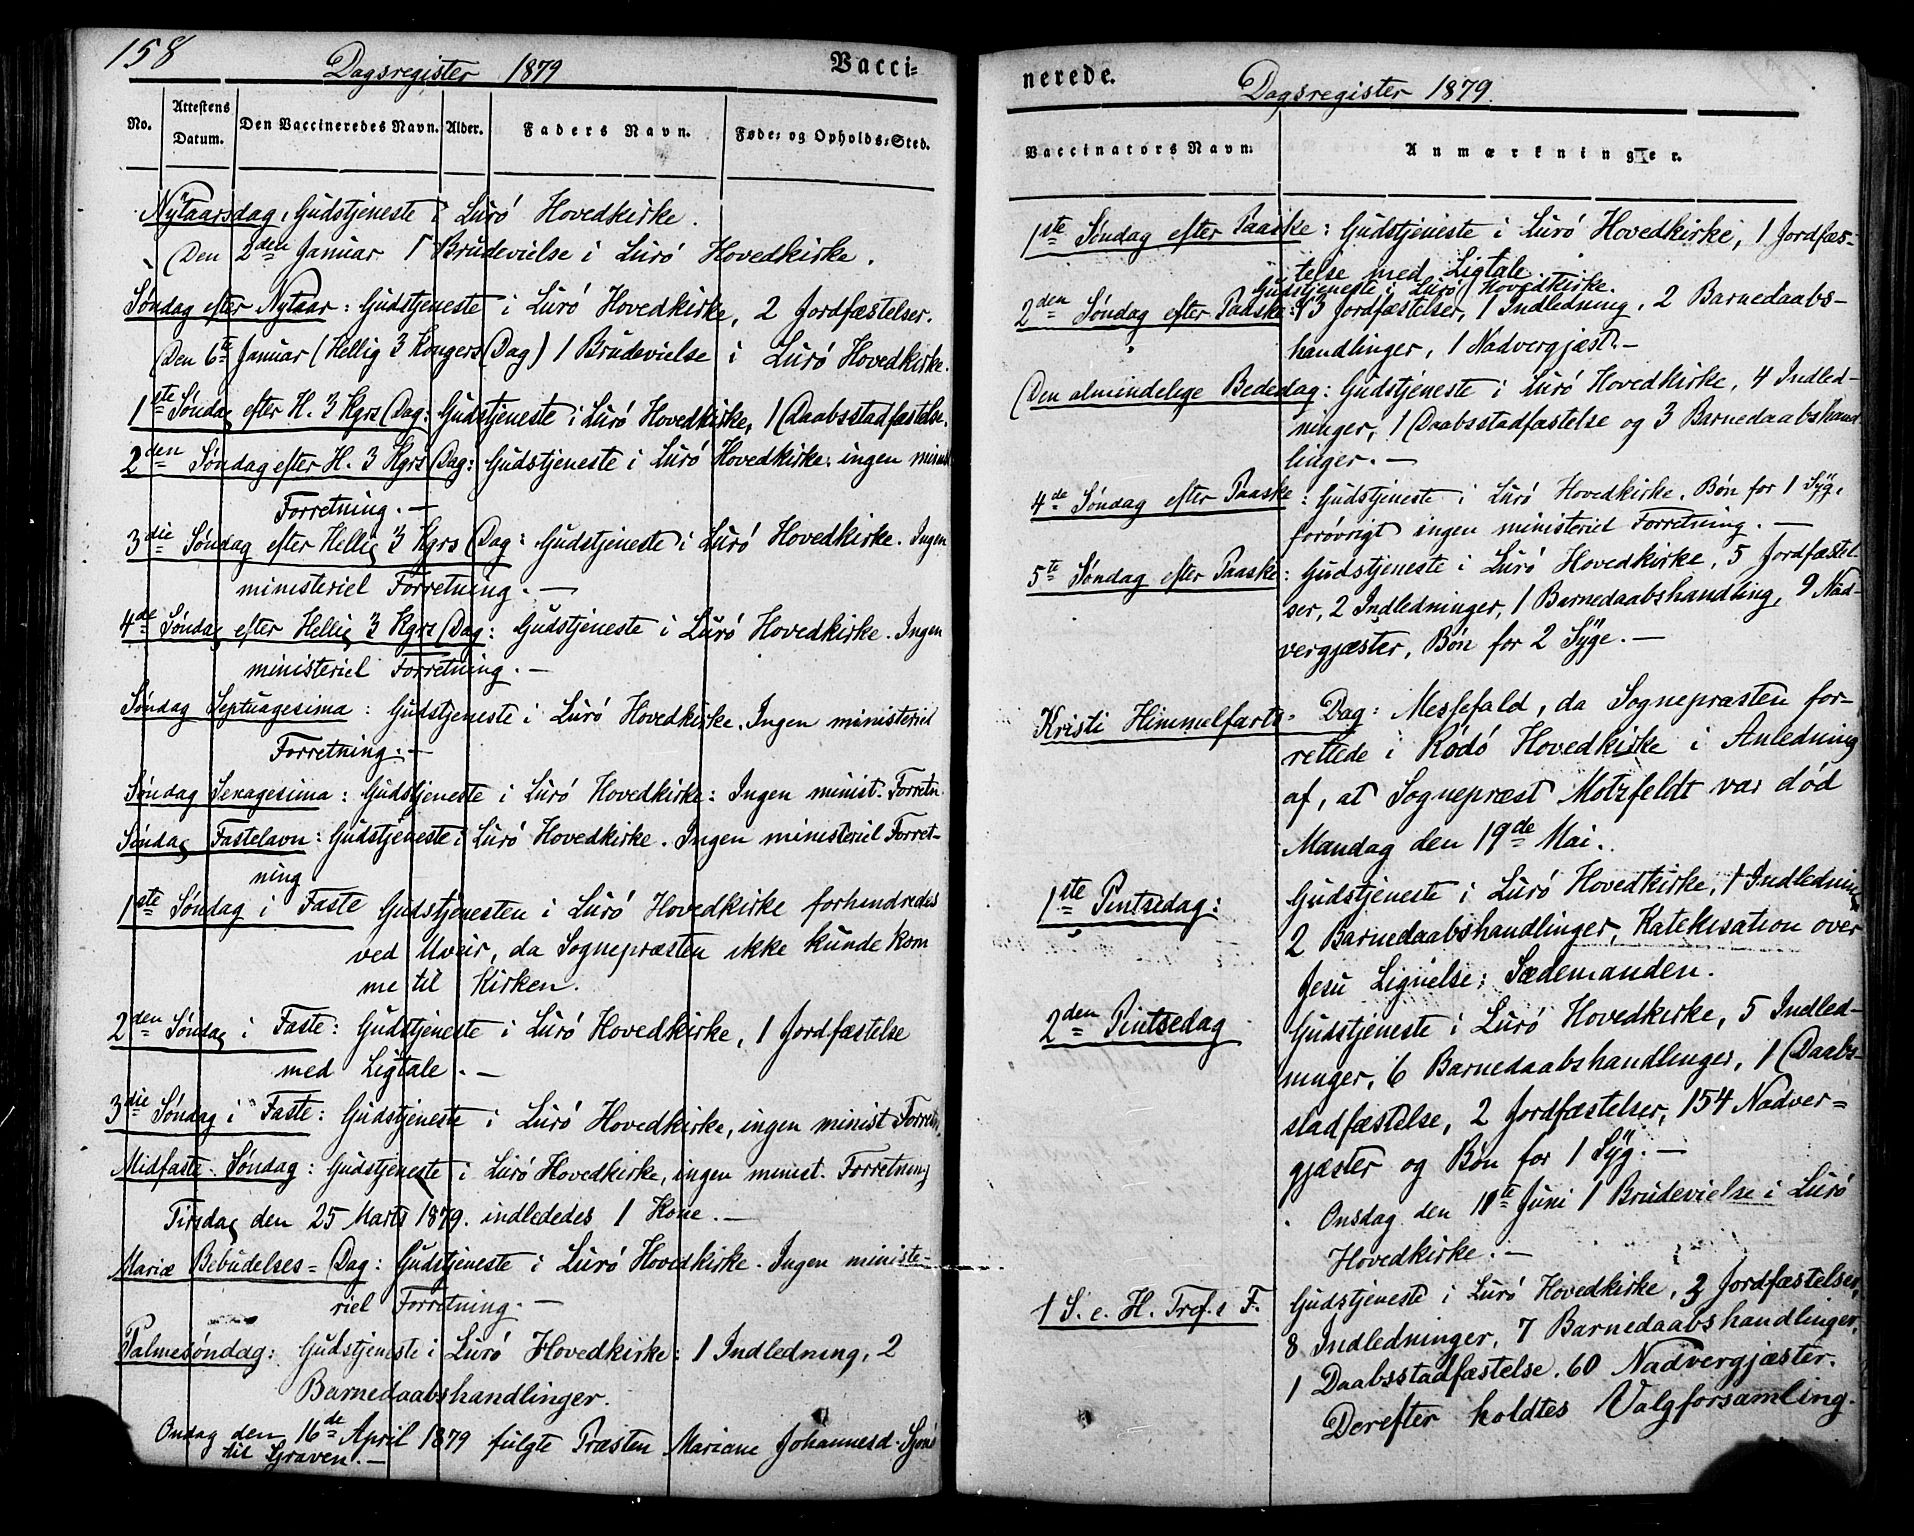 158
Dagsregister 1879
Vacci=
No.
Attestens
Datum.
Den Vaccineredes Navn.
Alder.
Faders Navn.
Føde= og Opholds=Sted.
Nytaarsdag, Gudstjeneste i Lurö Hovedkirke.
Den 2den Januar 1 Brudevielse i Lurö Hovedkirke.
Søndag efter Nytaar: Gudstjeneste i Lurö Hovedkirke, 2 Jordfæstelser.
Den 6te Januar (Hellig 3 Kongers Dag) 1 Brudevielse i Lurö Hovedkirke.
1ste Søndag efter H. 3 Kgrs Dag: Gudstjeneste i Lurö Hovedkirke, 1 Daabsstadfæstelse.
2den Søndag efter H. 3 Kgrs Dag: Gudstjeneste i Lurö Hovedkirke. ingen minist
Forretning. —
3die Søndag efter Hellig 3 Kgrs Dag: Gudstjeneste i Lurö Hovedkirke. Ingen
ministeriel Forretning. —
4de Søndag efter Hellig 3 Kgrs Dag: Gudstjeneste i Lurö Hovedkirke. Ingen
ministeriel Forretning. —
Søndag Septuagesima: Gudstjeneste i Lurö Hovedkirke. Ingen ministeriel
Forretning. —
Søndag Sexagesima: Gudstjeneste i Lurö Hovedkirke: Ingen minist. Forretn
Søndag Fastelavn: Gudstjeneste i Lurö Hovedkirke. Ingen ministeriel Forret-
ning
1ste Søndag i Faste Gudstjenesten i Lurö Hovedkirke forhindredes
ved Uveir, da Sognepræsten ikke kunde kom
me til Kirken.
2den Søndag i Faste: Gudstjeneste i Lurö Hovedkirke, 1 Jordfæstelse
med Ligtale. —
3die Søndag i Faste: Gudstjeneste i Lurö Hovedkirke, ingen minist Forretn.
Midfaste Søndag: Gudstjeneste i Lurö Hovedkirke, ingen minist. Forretning
Tirsdag den 25 Marts 1879. indlededes 1 Kone. —
Mariæ Bebudelses= Dag: Gudstjeneste i Lurö Hovedkirke. Ingen ministe-
riel Forretning. —
Palmesøndag: Gudstjeneste i Lurö Hovedkirke: 1 Indledning, 2
Barnedaabshandlinger.
Onsdag den 16de April 1879 fulgte Præsten Mariane Johannesd.
til Graven. —
nerede.
Dagsregister 1879.
Vaccinators Navn.
Anmærkninger.
1ste Søndag efter Paaske: Gudstjeneste i Lurö Hovedkirke, 1 Jordfæs-
telse med Ligtale
Gudstjeneste i Lurö Hovedkirke.
2den Søndag efter Paaske: 3 Jordfæstelser, 1 Indledning, 2 Barnedaabs-
handlinger, 1 Nadvergjæst. —
Den almindelige Bededag: Gudstjeneste i Lurö Hovedkirke, 4 Indled-
ninger, 1 Daabsstadfæstelse og 3 Barnedaabshand
linger. —
4de Søndag efter Paaske: Gudstjeneste i Lurö Hovedkirke. Bøn for 1 Syg,
forövrigt ingen ministeriel Forretning. —
5te Søndag efter Paaske: Gudstjeneste i Lurö Hovedkirke, 5 Jordfæstel-
ser, 2 Indledninger, 1 Barnedaabshandling, 9 Nad-
vergjæster, Bøn for 2 Syge. —
Kristi Himmelfarts= Dag: Messefald, da Sognepræsten for-
rettede i Rödö Hovedkirke i Anledning
af, at Sognepræst Motzfeldt var död
Mandag den 19de Mai.
1ste Pintsedag: Gudstjeneste i Lurö Hovedkirke, 1 Indledning
2 Barnedaabshandlinger, Katekisation over
Jesu Lignelse: Sædemanden.
2den Pintsedag Gudstjeneste i Lurö Hovedkirke, 5 Indled-
ninger, 6 Barnedaabshandlinger, 1 Daabs-
stadfæstelse, 2 Jordfæstelser, 154 Nadver=
gjæster og Bøn for 1 Syg. —
Onsdag den 11te Juni 1 Brudevielse i Lurö
Hovedkirke. —
1 S. e. H. Tref. s F. Gudstjeneste i Lurö Hovedkirke, 3 Jordfæstelser,
8 Indledninger, 7 Barnedaabshandlinger,
1 Daabsstadfæstelse. 60 Nadvergjæster.
Derefter holdtes Valgforsamling.